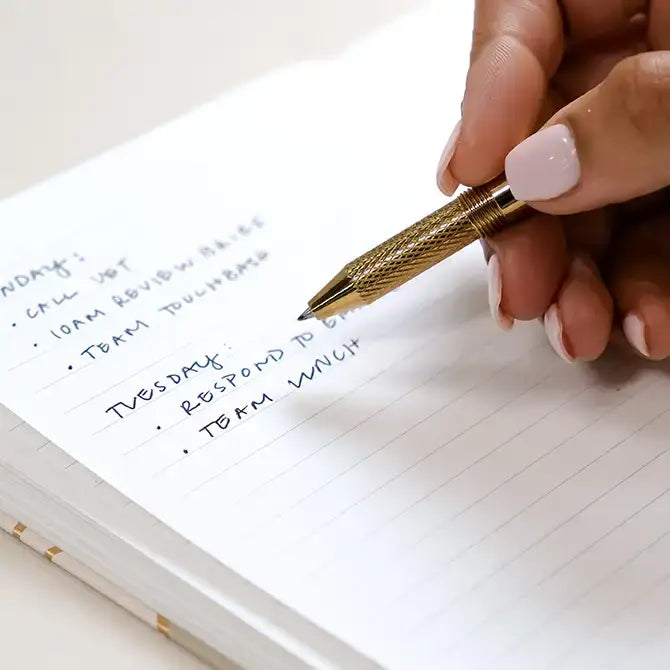 NDAY:
• CALL VET
• 10AM REVIEW BRIEF
• TEAM TOUCHBASE
TUESDAY:
• RESPOND TO
• TEAM LUNCH